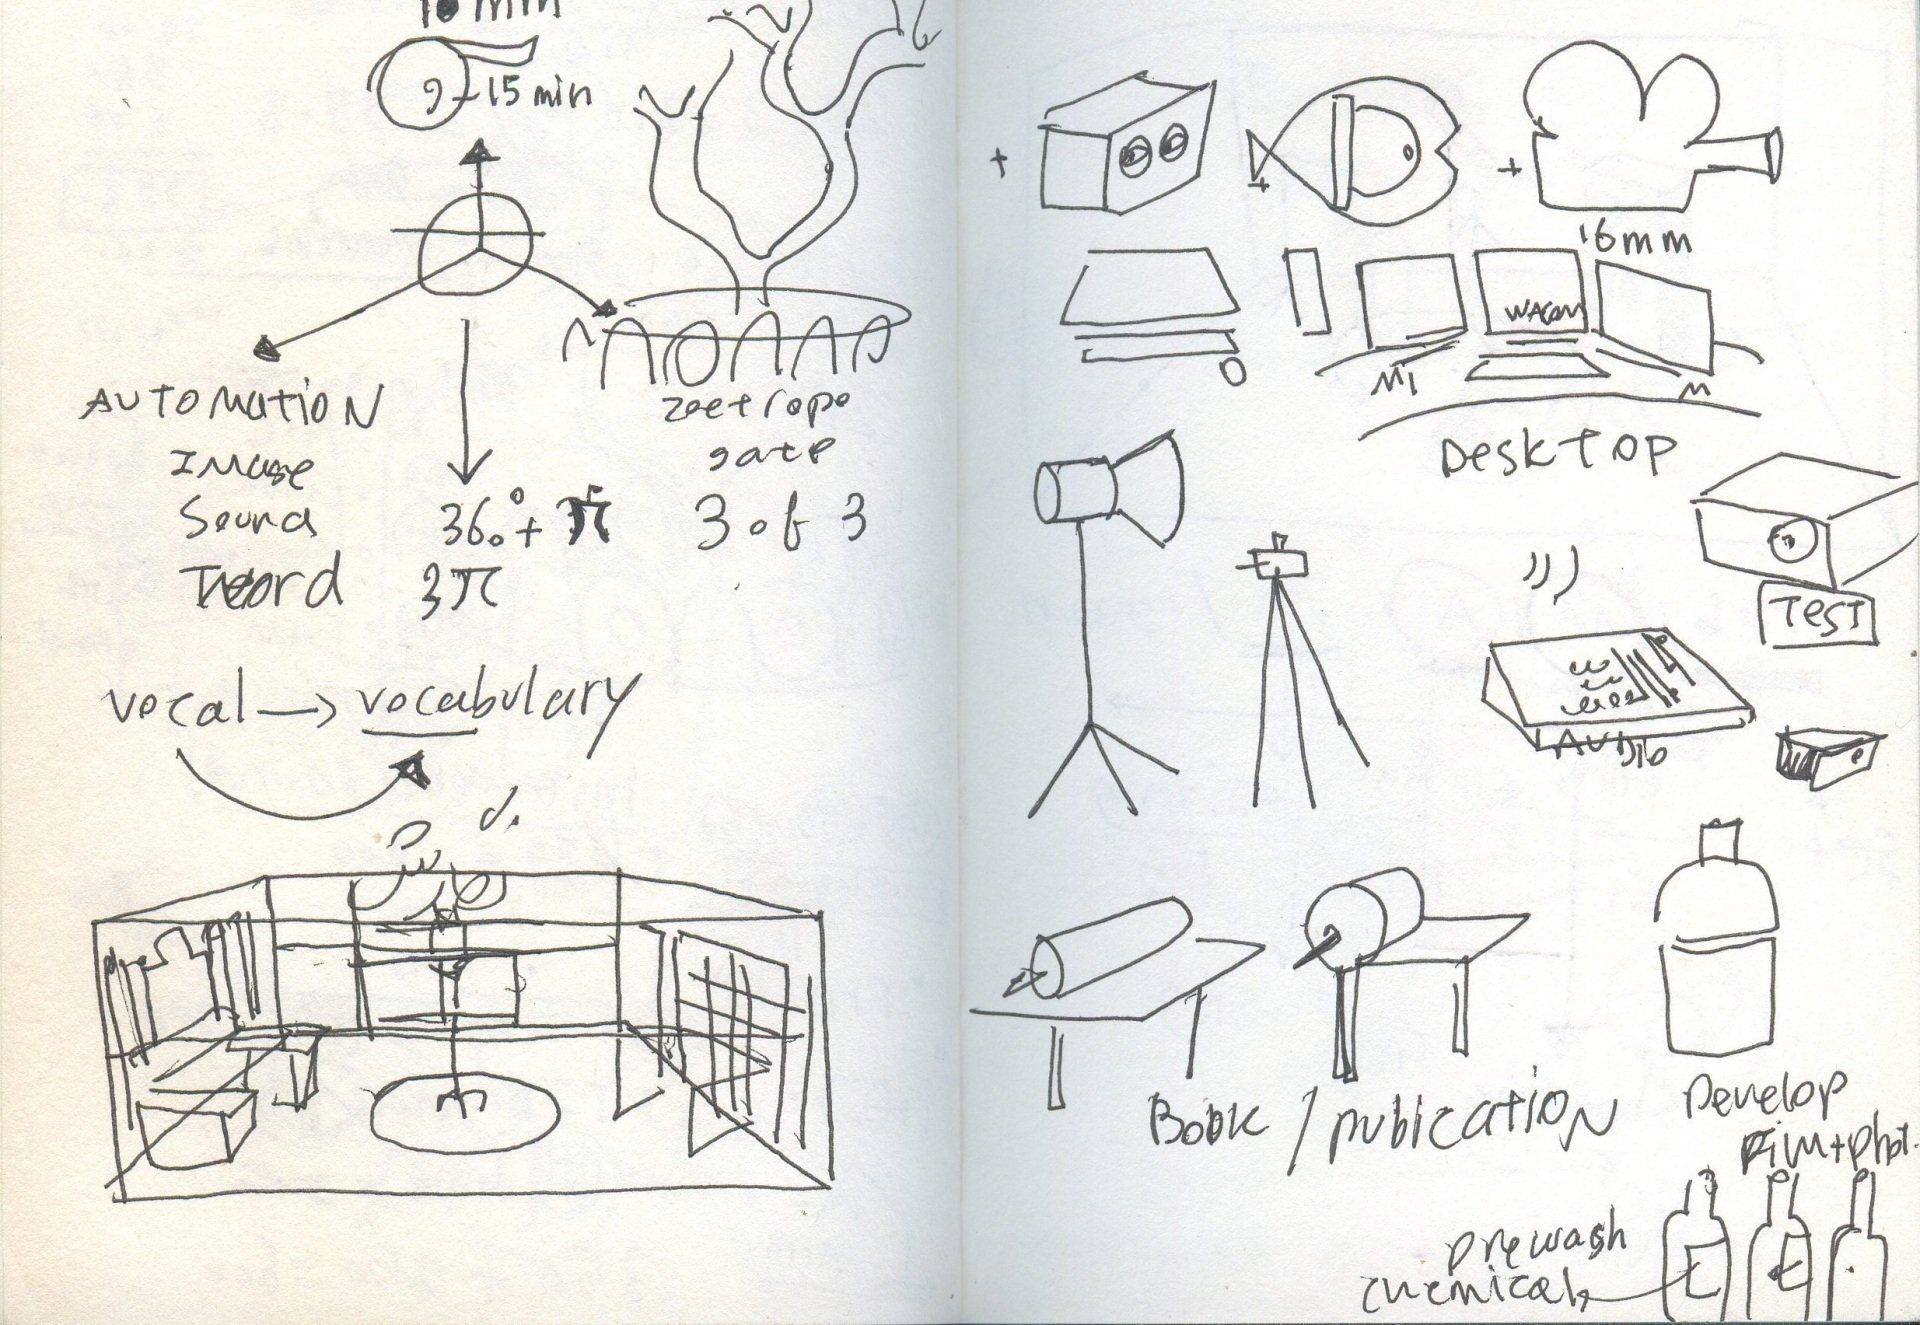 mm
15 min
AUTOMATION
IMAGE
Sound
Word
36.° +
3π
zeetrope
gate
3 of 3
vocal → vocabulary
+
+
+
16mm
WACOM
M1
M
DESKTOP
TEST
AUDIO
BOOK / PUBLICATION
Develop
FILM + phot.
prewash
chemical